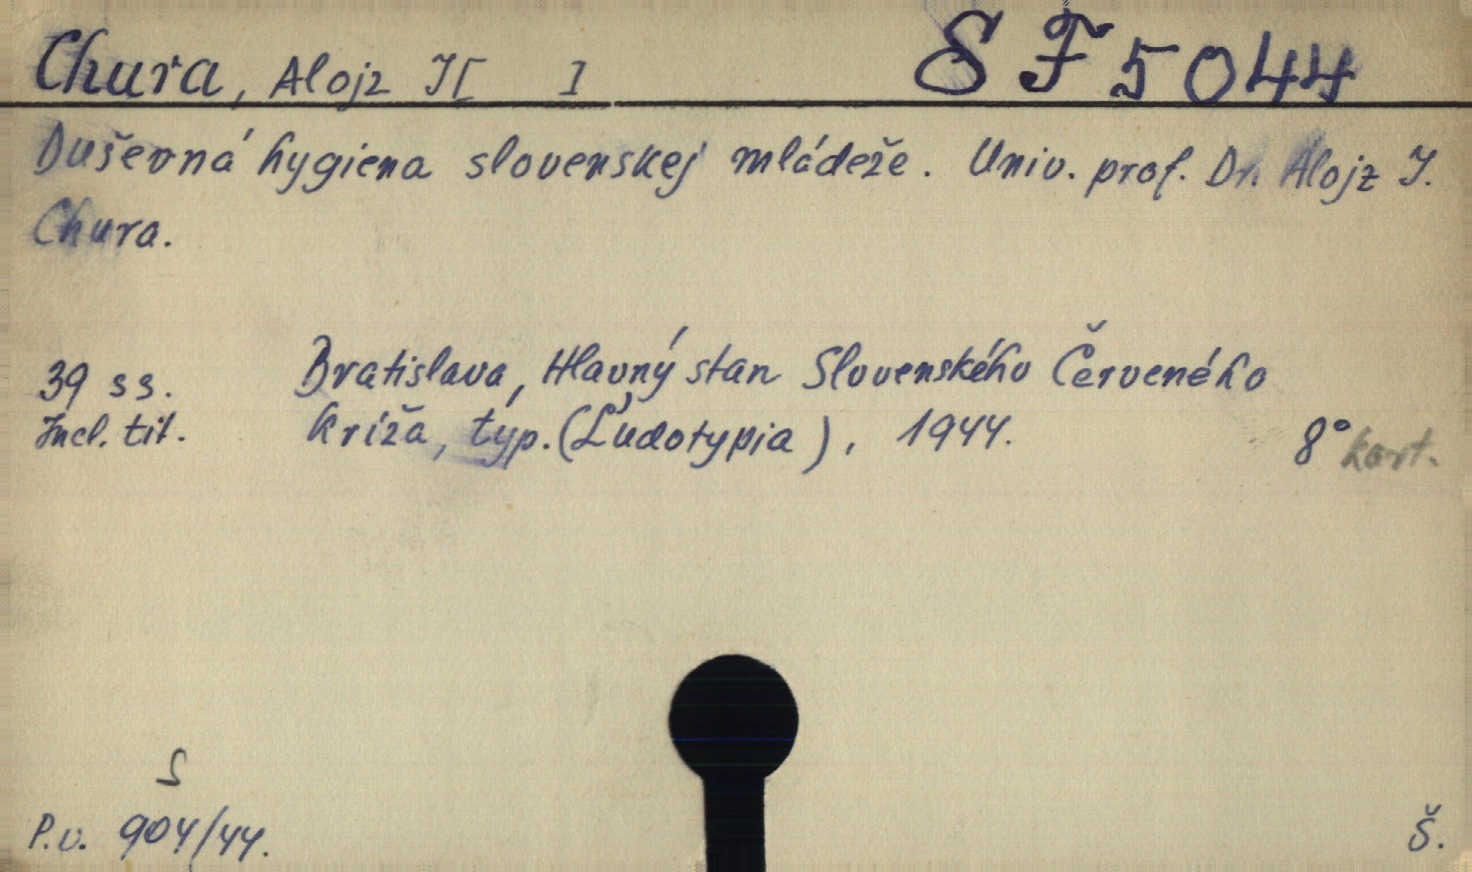 Chura, Alojz J[ ] SF5044
Duševná hygiena slovenskej mládeže. Univ. prof. Dr. Alojz J.
Chura.
39 ss. Bratislava, Hlavný stan Slovenského Červeného
Incl. tit. kríža, typ. (Ľudotypia), 1944. 8° kart.
S
P.v. 904/44. Š.